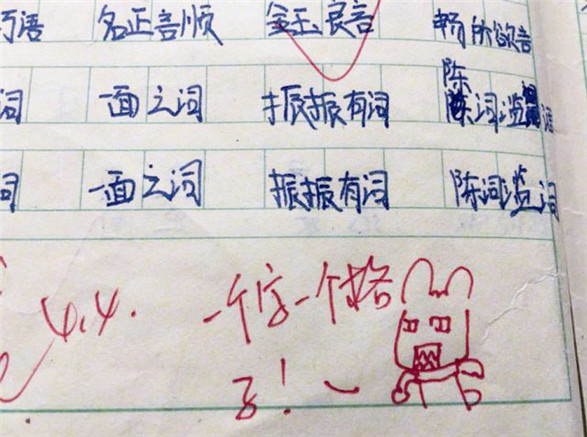 巧语 名正言顺 金玉良言 畅所欲言
词 一面之词 振振有词 陈词滥调
词 一面之词 振振有词 陈词滥词
4.4. 一个字一个格
了!